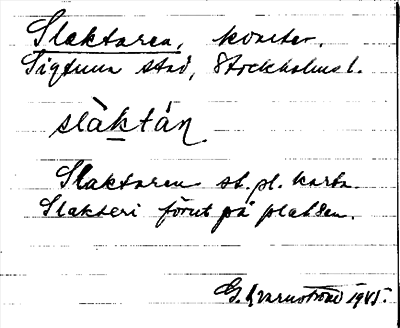 Slaktaren, kvarter.
Sigtuna stad, Stockholms l.
slàktán
Slaktaren st. pl. karta.
Slakteri förut på platsen.
G. Kvarnström 1945.